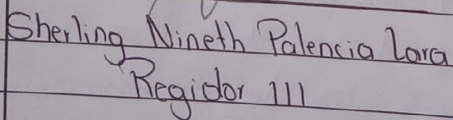 Sherling Nineth Palencia Lara
Regidor III